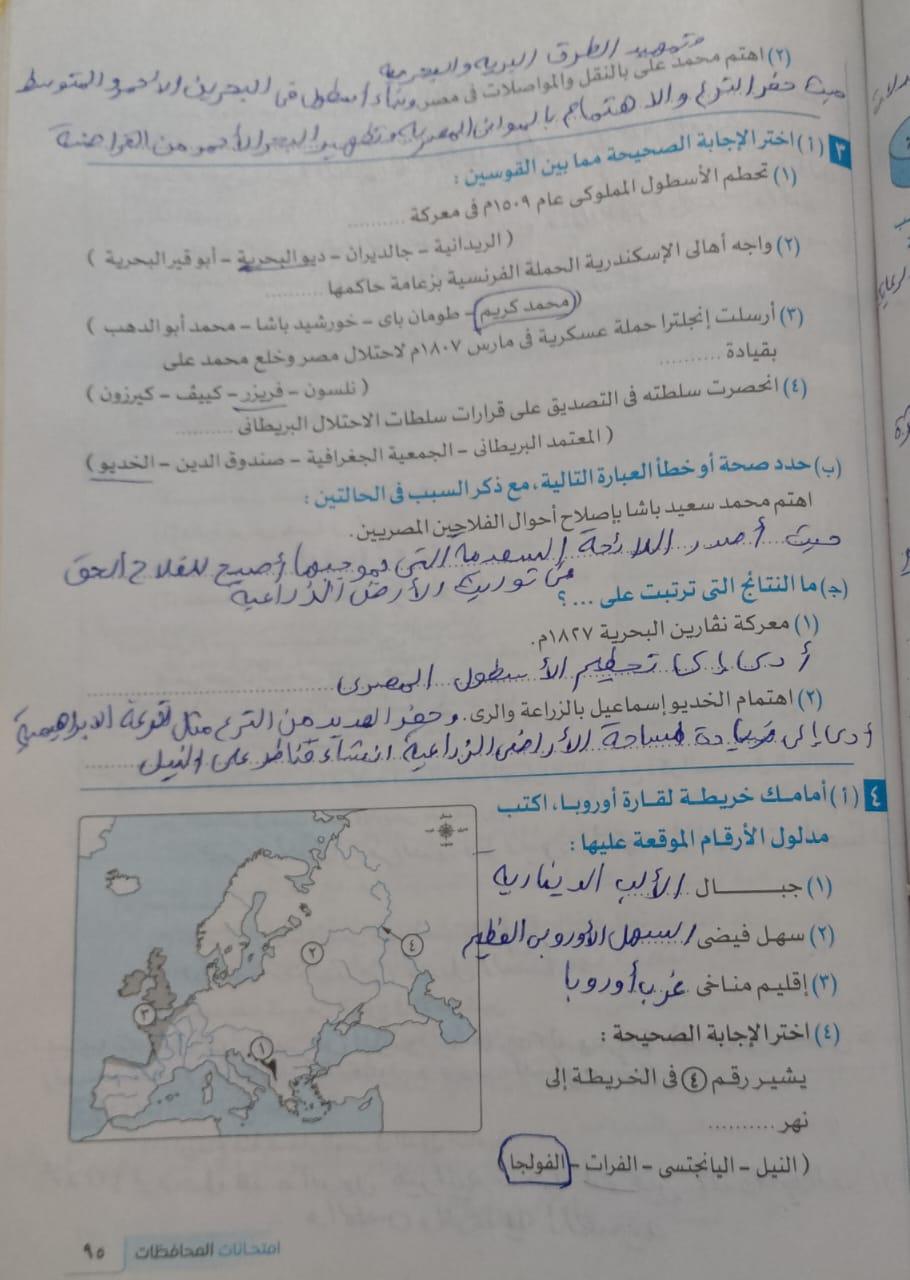 وتمهيد الطرق البرية والبحرية
(٢) اهتم محمد على بالنقل والمواصلات فى مصر وبناء أسطول فى البحرين الأحمر والمتوسط
حيث حفر الترع والاهتمام بالموانى المصرية وتطهير البحر الأحمر من القراصنة
٣ (أ) اختر الإجابة الصحيحة مما بين القوسين :
(١) تحطم الأسطول المملوكى عام ١٥٠٩م فى معركة ..........
( الريدانية - جالديران - ديو البحرية - أبو قير البحرية )
(٢) واجه أهالى الإسكندرية الحملة الفرنسية بزعامة حاكمها ..........
( محمد كريم - طومان باى - خورشيد باشا - محمد أبو الدهب )
(٣) أرسلت إنجلترا حملة عسكرية فى مارس ١٨٠٧م لاحتلال مصر وخلع محمد على
بقيادة ..........
( نلسون - فريزر - كييف - كيرزون )
(٤) انحصرت سلطته فى التصديق على قرارات سلطات الاحتلال البريطانى ..........
( المعتمد البريطانى - الجمعية الجغرافية - صندوق الدين - الخديو )
(ب) حدد صحة أو خطأ العبارة التالية، مع ذكر السبب فى الحالتين :
اهتم محمد سعيد باشا بإصلاح أحوال الفلاحين المصريين.
حيث أصدر اللائحة السعدية التى بموجبها أصبح للفلاح الحق
فى توريث الأرض الزراعية
(ج) ما النتائج التى ترتبت على ... ؟
(١) معركة نڤارين البحرية ١٨٢٧م.
أدى إلى تحطيم الأسطول المصرى
(٢) اهتمام الخديو إسماعيل بالزراعة والرى. وحفر العديد من الترع مثل ترعة الابراهيمية
أدى إلى زيادة مساحة الأراضى الزراعية انشاء قناطر على النيل
٤ (أ) أمامك خريطة لقارة أوروبا، اكتب
مدلول الأرقام الموقعة عليها :
(١) جبال الألب الدينارية
(٢) سهل فيضى السهل الأوروبى العظيم
(٣) إقليم مناخى غرب أوروبا
(٤) اختر الإجابة الصحيحة :
يشير رقم ④ فى الخريطة إلى
نهر ..........
( النيل - اليانجتسى - الفرات - الفولجا )
١
٢
٣
٤
امتحانات المحافظات
٩٥